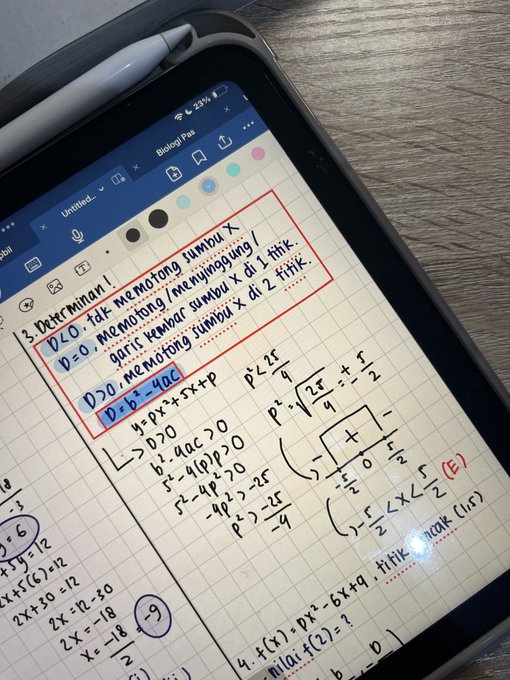 23%
Biologi Pas
Untitled...
3. Determinan!
D<0, tdk memotong sumbu X
D=0, memotong/menyinggung/
garis kembar sumbu X di 1 titik.
D>0, memotong sumbu X di 2 titik.
D=b²-4ac
y=px²+5x+p
↳ D>0
b²-4ac>0
5²-4(p)p>0
5²-4p²>0
-4p²>-25
p²>-25/-4
p²<25/4
p²=√25/4=±5/2
- + -
-5/2 0 5/2
-5/2<x<5/2 (E)
-3
y=6
+5y=12
2x+5(6)=12
2x+30=12
2x=12-30
2x=-18
x=-18/2 = -9
4. f(x)=px²-6x+q, titik (1,5)
nilai f(2)=?